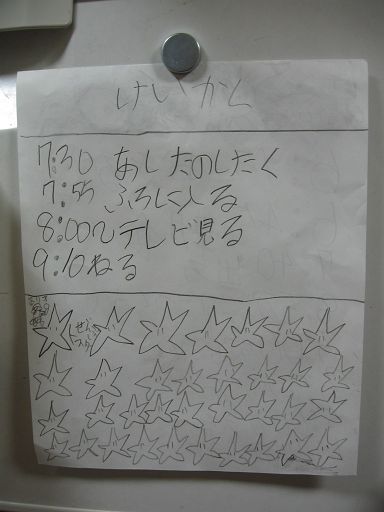 けいかく
7:30 あしたのしたく
7:55 ふろにはいる
8:00〜テレビ見る
9:10ねる